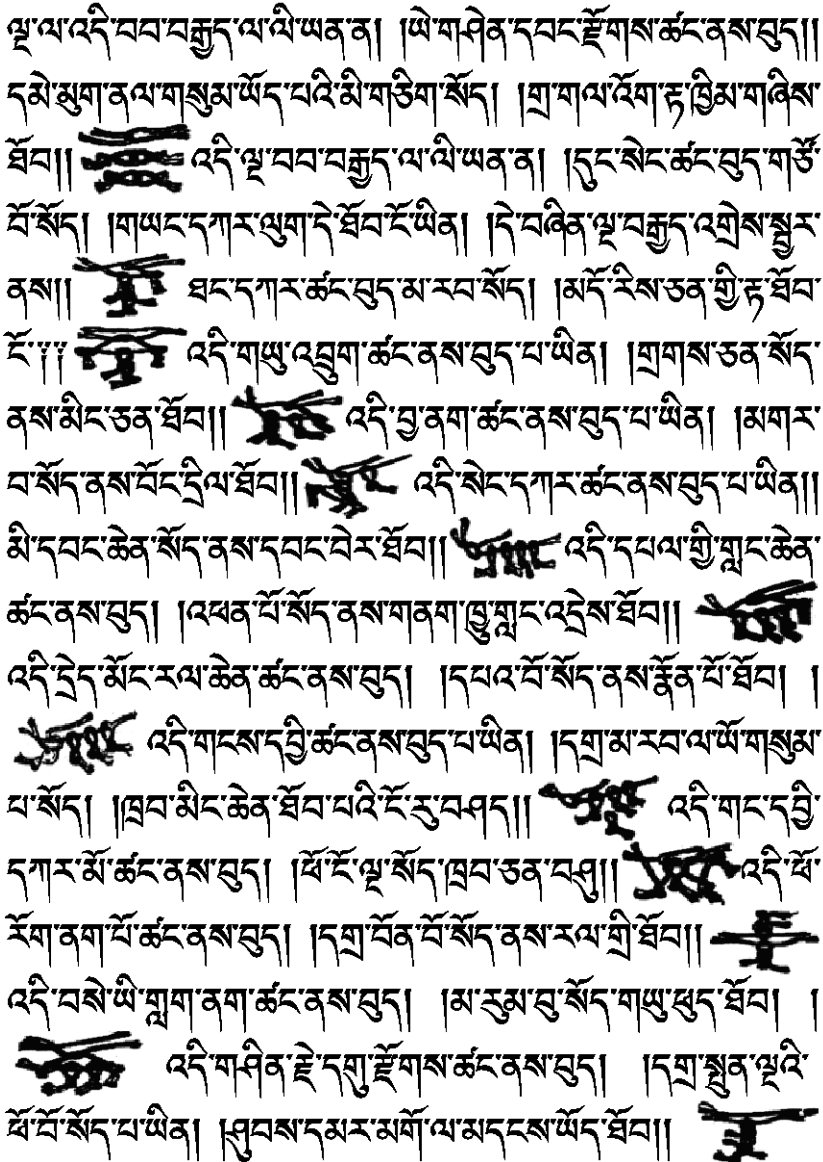 ལྔ་ལ་འདི་བབ་བརྒྱད་ལ་ལི་ཡན་ན། །ཡེ་གཤེན་དབང་རྫོགས་ཚང་ནས་བུད།།
དམེ་མུག་ནལ་གསུམ་ཡོད་པའི་མི་གཅིག་སོད། །གྲ་གལ་འོག་རྟ་ཁྱིམ་གཞིས་
ཐོབ།། འདི་ལྔ་བབ་བརྒྱད་ལ་ལི་ཡན་ན། །དུང་སེང་ཚང་བུད་གཙོ་
བོ་སོད། །གཡང་དཀར་ལུག་དེ་ཐོབ་ངོ་ཡིན། །དེ་བཞིན་ལྔ་བརྒྱད་འགྲེས་སྦྱར་
ནས།། ཐང་དཀར་ཚང་བུད་མ་རབ་སོད། །མདོ་རིས་ཅན་གྱི་རྟ་ཐོབ་
ངོ་༑༑ འདི་གཡུ་འབྲུག་ཚང་ནས་བུད་པ་ཡིན། །གྲགས་ཅན་སོད་
ནས་མིང་ཅན་ཐོབ།། འདི་བྱ་ནག་ཚང་ནས་བུད་པ་ཡིན། །མགར་
བ་སོད་ནས་བོང་དྲིལ་ཐོབ།། འདི་སེང་དཀར་ཚང་ནས་བུད་པ་ཡིན།།
མི་དབང་ཆེན་སོད་ནས་དབང་བེར་ཐོབ།། འདི་དཔལ་གྱི་གླང་ཆེན་
ཚང་ནས་བུད། །འཕན་པོ་སོད་ནས་གནག་ཁྱུ་གླང་འདྲེས་ཐོབ།།
འདི་དྲེད་མོང་རལ་ཆེན་ཚང་ནས་བུད། །དཔའ་བོ་སོད་ནས་རྣོན་པོ་ཐོབ། །
འདི་གངས་དབྱི་ཚང་ནས་བུད་པ་ཡིན། །དགྲ་མ་རབ་ལ་ཡོ་གསུམ་
པ་སོད། །ཁྲབ་མིང་ཆེན་ཐོབ་པའི་ངོ་རུ་བཤད།། འདི་གང་དབྱི་
དཀར་མོ་ཚང་ནས་བུད། །ཕོ་ངོ་ལྔ་སོད་ཁྲབ་ཅན་བཤུ།། འདི་ཕོ་
རོག་ནག་པོ་ཚང་ནས་བུད། །དགྲ་བོན་བོ་སོད་ནས་རལ་གྲི་ཐོབ།།
འདི་བསེ་ཡི་གླག་ནག་ཚང་ནས་བུད། །མ་རུམ་བུ་སོད་གཡུ་ཕུད་ཐོབ། །
འདི་གཤིན་རྗེ་དགུ་རྫོགས་ཚང་ནས་བུད། །དགྲ་སྤུན་ལྔའི་
ཕོ་བོ་སོད་པ་ཡིན། །ཤུབས་དམར་མགོ་ལ་མདངས་ཡོད་ཐོབ།།